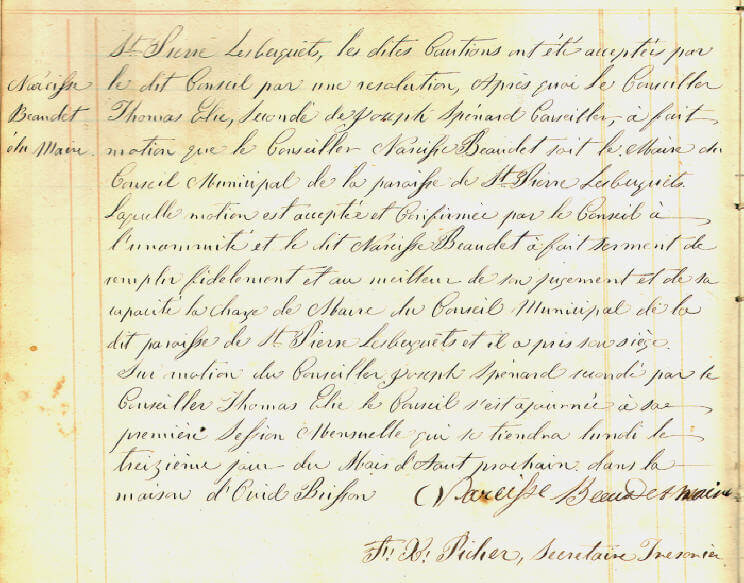 St Pierre Lesbecquets, les dites Cautions ont été acceptées par
Narcisse
le dit Conseil par une resolution, Après quoi le Conseiller
Beaudet
Thomas Elie, secondé de Joseph Spénard Conseiller, à fait
élu Maire.
motion que le Conseiller Narcisse Beaudet soit le Maire du
Conseil Municipal de la paroisse de St Pierre Lesbecquets.
Laquelle motion est acceptée et Confirmée par le Conseil à
l'unanimité et le dit Narcisse Beaudet à fait serment de
remplir fidelement et au meilleur de son jugement et de sa
capacité la charge de Maire du Conseil Municipal de la
dit paroisse de St Pierre Lesbecquets et il a pris son siège.
Sur motion du Conseiller Joseph Spénard secondé par le
Conseiller Thomas Elie le Conseil s'est ajournée à sa
premièré Session Mensuelle qui se tiendra lundi le
treizième jour du Mois d'Aout prochain dans la
maison d'Ovid Brisson Narcisse Beaudet maire
Fr. X. Picher, Secretaire Tresorier